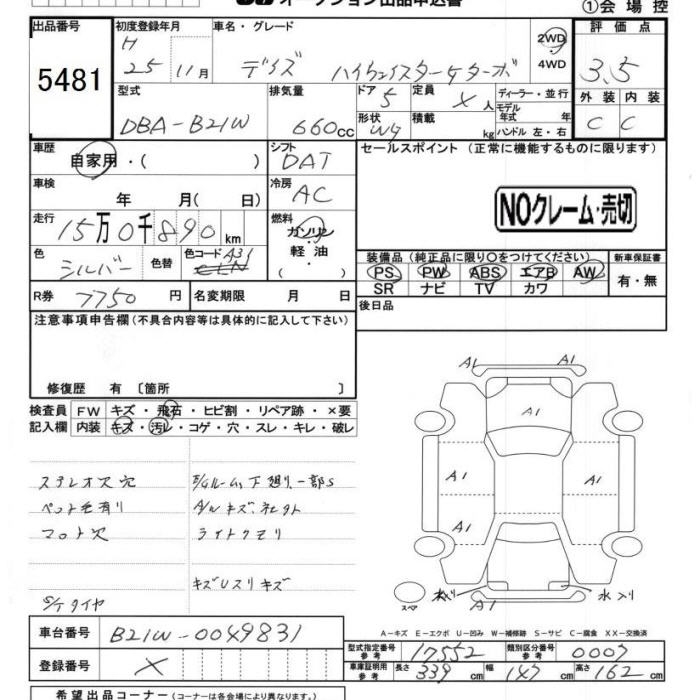 オークション出品申込書
①会場控
出品番号
5481
初度登録年月
H
25 11月
車名・グレード
デイズ ハイウェイスターG ターボ
2WD
4WD
評価点
3.5
外装 内装
C C
型式
DBA-B21W
排気量
660cc
ドア
5
形状
WG
定員
X人
積載
kg
ディーラー・並行
モデル年式 年
ハンドル 左・右
車歴
自家用・( )
シフト
DAT
セールスポイント (正常に機能するものに限ります)
NOクレーム・売切
車検
年 月( 日)
冷房
AC
走行
15万0千890km
燃料
ガソリン
軽油
色
シルバー
色替
色コード
A31
装備品 (純正品に限り○をつけてください)
PS PW ABS エアB AW
SR ナビ TV カワ
新車保証書
有・無
R券
7750円
名変期限 月 日
後日品
注意事項申告欄(不具合内容等は具体的に記入して下さい)
修復歴 有 〔箇所 〕
検査員記入欄
FW キズ・飛石・ヒビ割・リペア跡・×要
内装 キズ・汚レ・コゲ・穴・スレ・キレ・破レ
ステレオス穴
ペット毛有り
マット穴
下廻り一部S
A/Wキズ
ライトクモリ
キズUスリキズ
S/Tタイヤ
A1
A1
A1
A1
A1
A1
A1
スペア
水入り
A-キズ E-エクボ U-凹み W-補修跡 S-サビ C-腐食 XX-交換済
車台番号
B21W-0049831
登録番号
X
型式指定番号
参考
17552
類別区分番号
参考
0007
車庫証明用
参考
長さ 339cm
幅 147cm
高さ 162cm
希望出品コーナー(コーナーは各会場により異なります。)